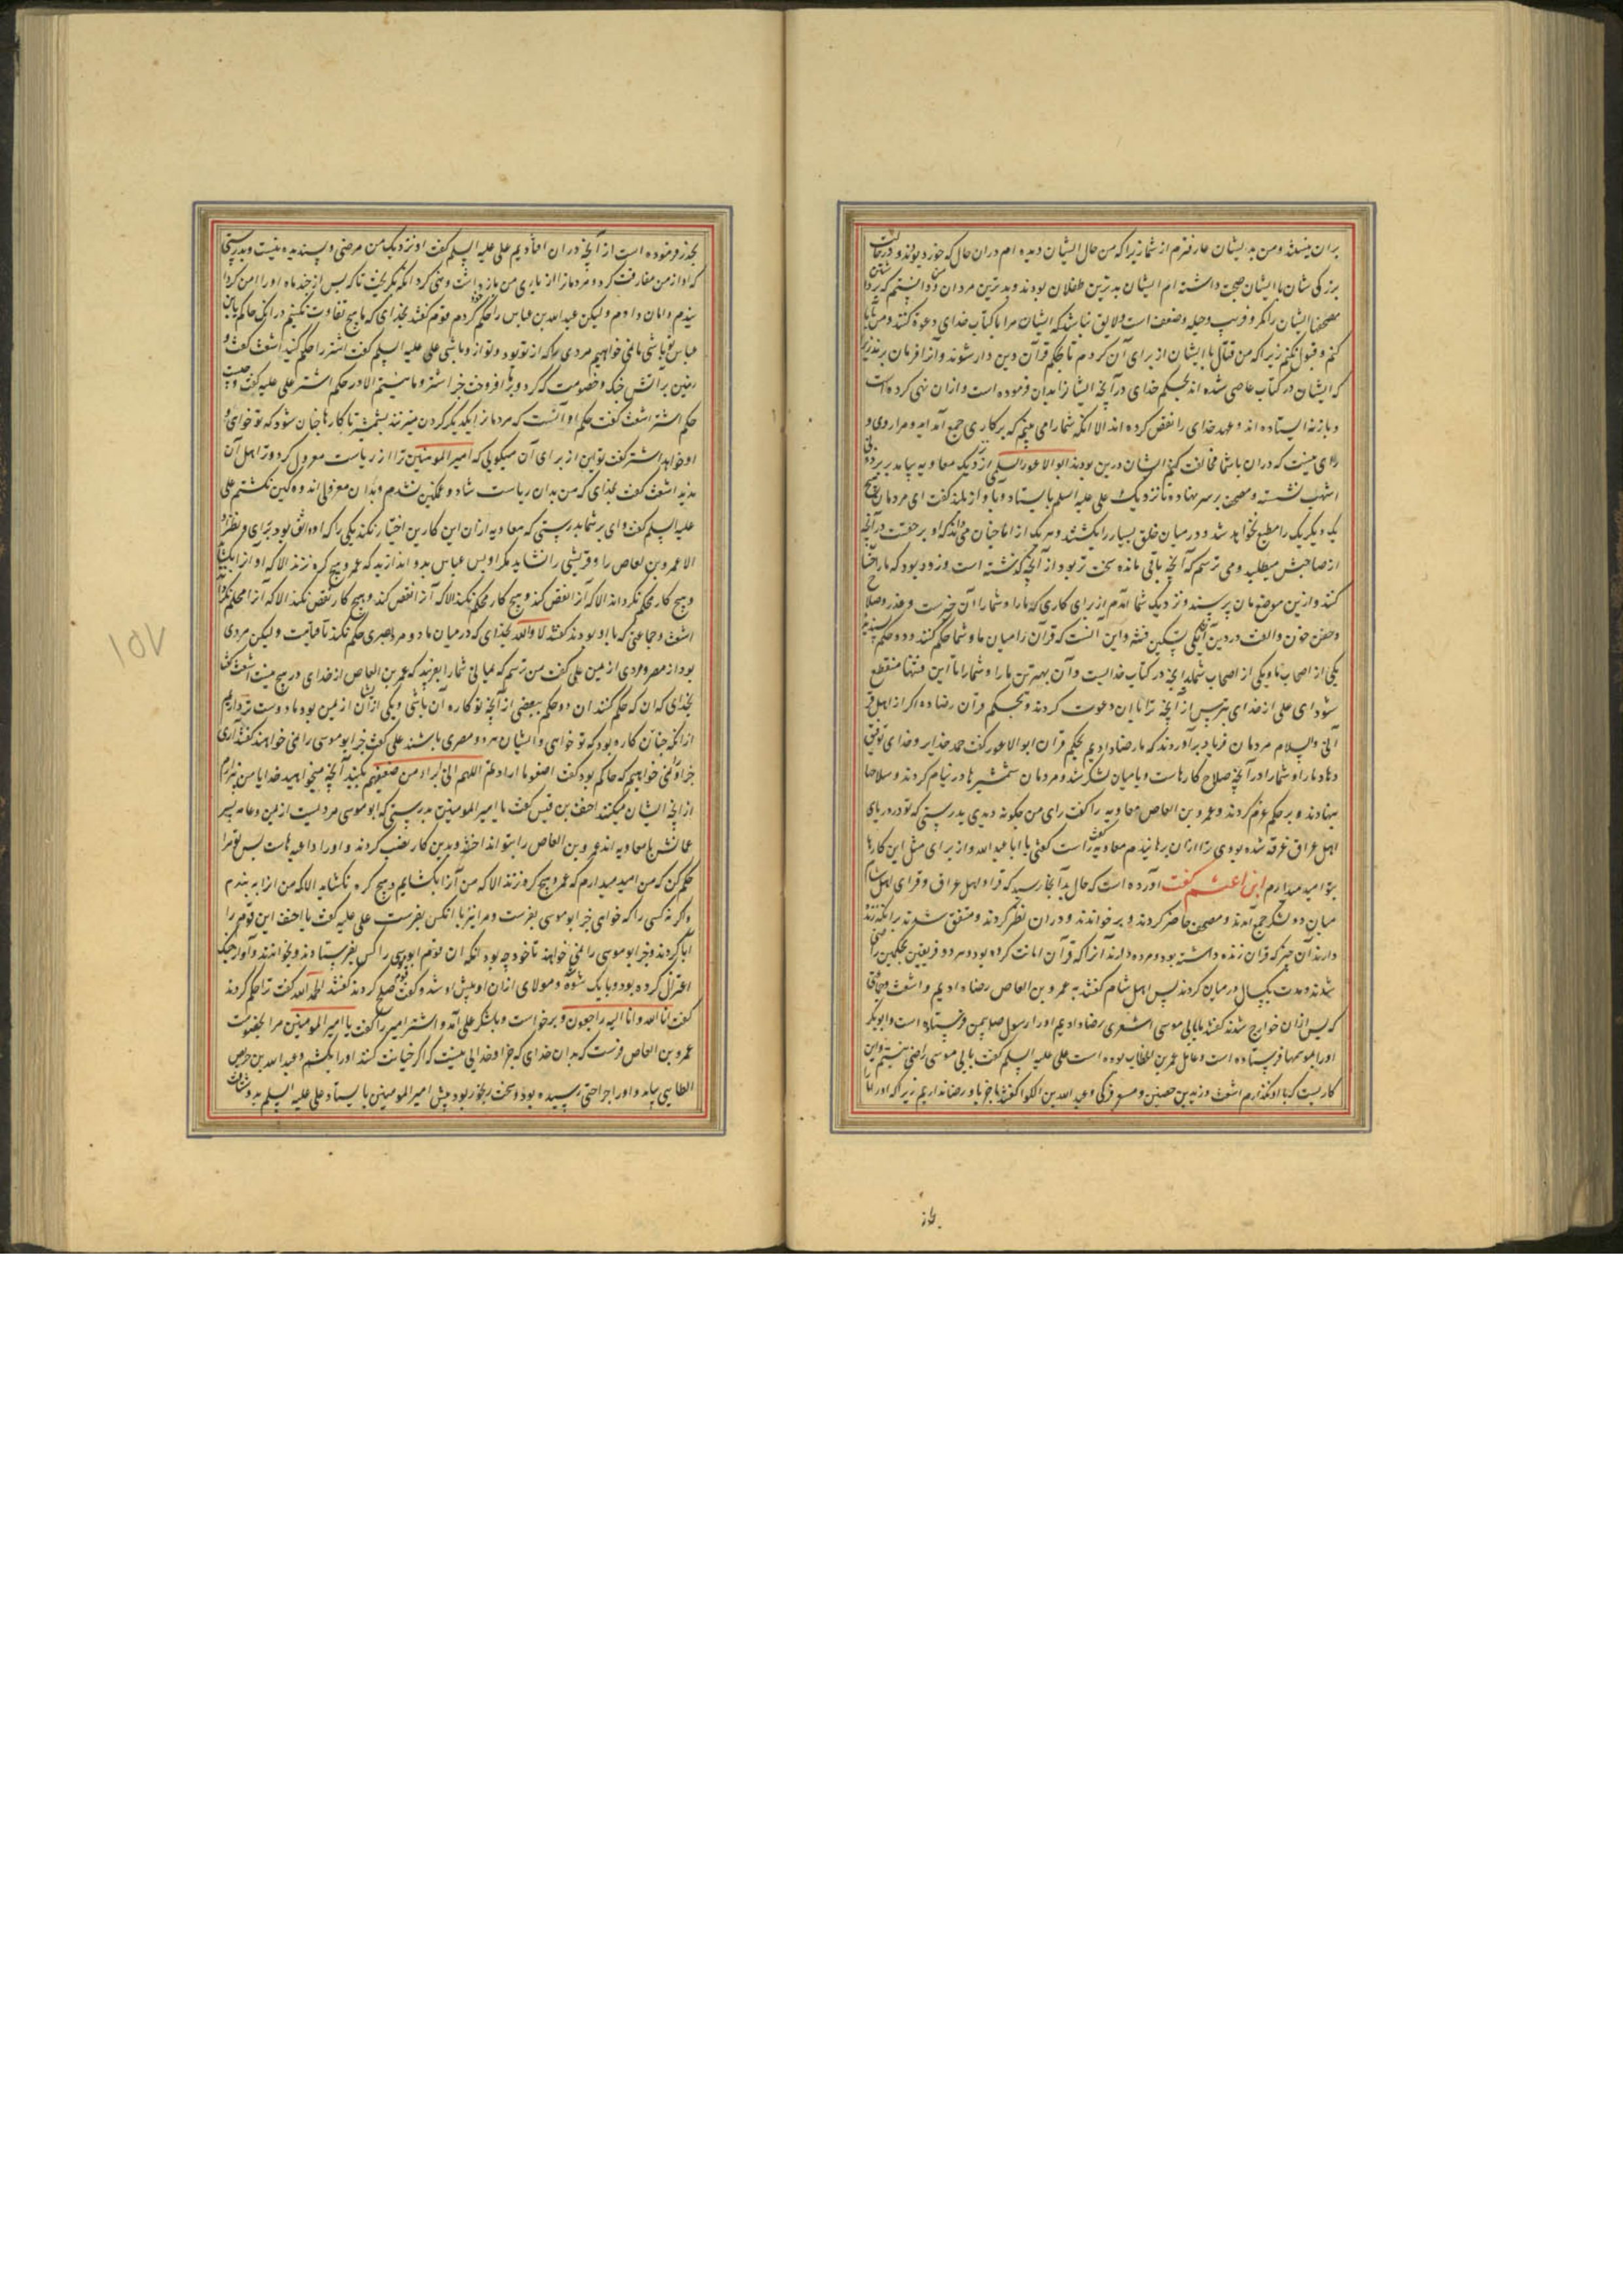 بران نیستند و من بدیشان عارفترم از شما زیرا که من حال ایشان دیده ام دران حال که خورد بودند و در حالت
بزرگی شان با ایشان صحبت داشته ام ایشان بدترین طفلان بودند و بدترین مردان و دانستم که برداشتن
مصحفها ایشان را مکر و فریب و حیله و ضعف است و لایق نباشد که ایشان مرا با کتاب خدای دعوة کنند و من
کنم و قبول نکنم زیرا که من قتال با ایشان از برای آن کردم تا بحکم قرآن دین دار شوند و آنرا فرمان برند زیرا
که ایشان در کتاب عاصی شده اند بحکم خدای در آنچه ایشانرا بدان فرموده است و ازان نهی کرده است
و باز نه ایستاده اند و عهد خدای را نقض کرده اند الا انکه شما را می بینم که بر کاری جمع آمده اید و مرا روی و
رای نیست که دران با شما مخالفت کنم ایشان درین بودند ابوالاعور السلمی از نزدیک معاویه بیامد بر برذونی
اشهب نشسته و مصحف بر سر نهاده تا نزدیک علی علیه السلم بایستاد و باواز بلند گفت ای مردمان هیچ
یک دیگریک را مطیع نخواهد شد و در میان خلق بسیار را بکشتند و هر یک از ما چنان می داند که او بر حقست در آنچه
از صاحبش میطلبد و می ترسم که آنچه باقی مانده سخت تر بود از آنچه گذشته است و زود بود که ما را
کنند و ازین موضع مان پرسند و نزدیک شما آمدم از برای کاری که ما را و شما را آن خیرست و عذر و صلاح
و حقن خون و الفت در دین و تسکین فتنه و این آنست که قرآن را میان ما و شما حکم کنند و دو حکم
یکی از اصحاب ما و یکی از اصحاب شما بدانچه در کتاب خدایست و آن بهترین ما را و شما را تا این فتنها منقطع
شود ای علی از خدای بترس از آنچه ترا بان دعوت کردند و بحکم قرآن رضا ده اگر از اهل قر
آنی والسلام مردمان فریاد برآوردند که ما رضا دادیم بحکم قرآن ابوالاعور گفت حمد خدایرا و خدای توفیق
دهاد ما را و شما را در آنچه صلاح کارهاست و با میان لشکر شد و مردمان شمشیرها در نیام کردند و سلاحها
بنهادند و بر حکم عزم کردند و عمرو بن العاص معاویه را گفت رای من چگونه دیدی بدرستی که تو در دریای
اهل عراق غرقه شده بودی ترا ازان برهانیدم معاویه گفت راست گفتی یا ابا عبد الله و از برای مثل این کارها
بتو امید میدارم ابن اعثم گفت آورده است که حال بدآنجا رسید که قراء اهل عراق و قرای اهل شام
میان دو لشکر جمع آمدند و مصحف حاضر کردند و بر خواندند و دران نظر کردند و متفق شدند برآنکه زنده
دارند آن چیز که قرآن زنده داشته بود و مرده دارند آنرا که قرآن امانت کرده بود و هر دو فریقین بحکمین راضی
شدند و مدت یکسال در میان کردند پس اهل شام گفتند به عمرو بن العاص رضا دادیم و اشعث و جماعتی
که پس ازان خوارج شدند گفتند ما بابی موسی اشعری رضا دادیم او را رسول صلعم بیمن فرستاده است و ابوبکر
او را بموسمها فرستاده است و عامل عمر بن الخطاب بوده است علی علیه السلم گفت بابی موسی راضی نیستم و این
کاریست که با او نگذارم اشعث و زید بن حصین و مسعر فدکی و عبد الله بن الکوا گفتند ما جز باو رضا نداریم زیرا که او را ما
بجذر فرموده است از آنچه دران افتادیم علی علیه السلم گفت او نزدیک من مرضی و پسندیده نیست و بدرستی
که او از من مفارقت کرد و مردمانرا از یاری من بازداشت و نهی کرد انکه بگریخت تا که پس از چند ماه او را امن کردا
نیدم و امان دادم ولیکن عبد الله بن عباس را حکم کردم قوم گفتند بخدای که ما هیچ تفاوت نکنیم در انک حاکم
عباس تو باشی ما نمی خواهیم مردی را که از تو بود و تو ازو باشی علی علیه السلم گفت اشتر را حکم کنید اشعث گفت و
زمین بر آتش جنگ و خصومت که کرد و افروخت جز اشتر و ما نیستیم الا در حکم اشتر علی علیه گفت و چیست
حکم اشتر اشعث گفت حکم او آنست که مردمانرا یکدیگر گردن میزنند بشمشیر تا کارها چنان شود که تو خواهی و
او خواهد اشتر گفت تو این از برای آن میگویی که امیرالمومنین ترا از ریاست معزول کرد و ترا اهل آن
ندید اشعث گفت بخدای که من بدان ریاست شاد و غمگین نشدم و بدان معزولی اندوهگین نگشتم علی
علیه السلم گفت وای بر شما بدرستی که معاویه ازان این کار این اختیار نکند یکی را که او واثق بود برای و نظر او
الا عمرو بن العاص را و قریشی را نشاید مگر او پس عباس بدو اندازید که عمرو هیچ گره نزند الا که او آنرا بگشاید
و هیچ کار محکم نگرداند الا که آنرا نقض کند و هیچ کار محکم نکند الا که آنرا نقض کند و هیچ کار نقض نکند الا که آنرا محکم گرداند
اشعث و جماعتی که با او بودند گفتند لا والله بخدای که در میان ما دو مرد مضری حکم نکند تا قیامت ولیکن مردی
بود از مصر و مردی از یمن علی گفت من ترسم که میانی شما را بفریبد که عمرو بن العاص از خدای در هیچ نیست اشعث گفت
بخدای که ان که حکم کنند ان دو حکم ببعضی از آنچه تو کاره آن باشی و یکی ازیشان از یمن بود ما دوست تر داریم
از آنکه چنان کار بود که تو خواهی و ایشان هر دو مصری باشند علی گفت جز ابو موسی را نمی خواهند گفتند آری
جز او نمی خواهیم که حاکم بود گفت اصنعوا ما اردتم اللهم انی ابرا من صنعهم بکنید آنچه میخواهید خدایا من بیزارم
از آنچه ایشان میکنند احنف بن قیس گفت یا امیر المومنین بدرستی که ابو موسی مردیست از یمن و عامه پسر
عمانش با معاویه اند عمرو بن العاص را بتو انداختند و بدین کار نصب کردند و او را داعیه هاست پس تو مرا
حکم کن که من امید میدارم که عمرو هیچ گره نزند الا که من آنرا بگشایم و هیچ گره نگشاید الا که من آنرا به بندم
و گر نه کسی را که خواهی جز ابو موسی بفرست و مرا نیز با آنکس بفرست علی علیه گفت یا احنف این قوم را
ابا کردند و جز ابو موسی را نمی خواهند تا خود چه بود آنکه ان قوم ابو موسی را کس بفرستادند و بخواندند و او از جنگ
اعتزال کرده بود و با یک شوه و مولای ازان او پیش او شد و گفت صلح کردند گفتند الحمد لله گفت ترا حکم کردند
گفت انا لله و انا الیه راجعون و برخواست و بلشکر علی آمد و اشتر امیر را گفت یا امیر المومنین مرا بخصومت
عمرو بن العاص فرست که بدان خدای که جز او خدایی نیست که اگر خیانت کند او را بکشم و عبد الله بن
الطایی بیامد و او را جراحتی رسیده بود و سخت رنجور بود پیش امیر المومنین بایستاد علی علیه السلم بدو
۱۵۷